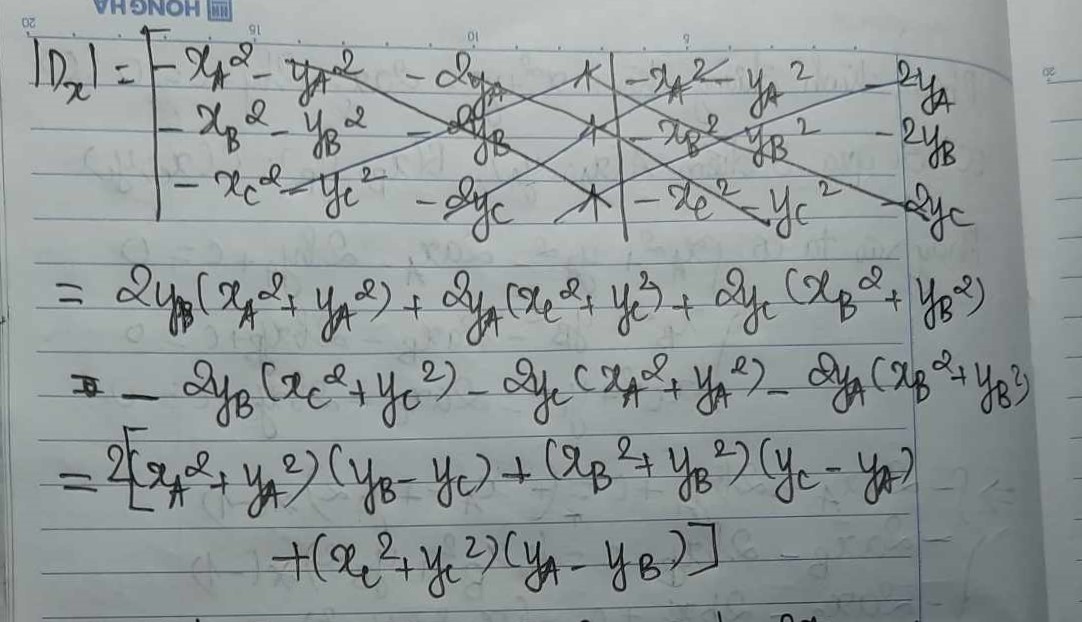 HONG HA
20 15 10 5 20
|Dₓ| = | - x_A² - y_A² - 2y_A 1 | - x_A² - y_A² - 2y_A
- x_B² - y_B² - 2y_B 1 | - x_B² - y_B² - 2y_B
- x_C² - y_C² - 2y_C 1 | - x_C² - y_C² - 2y_C
= 2y_B(x_A² + y_A²) + 2y_A(x_C² + y_C²) + 2y_C(x_B² + y_B²)
- 2y_B(x_C² + y_C²) - 2y_C(x_A² + y_A²) - 2y_A(x_B² + y_B²)
= 2[(x_A² + y_A²)(y_B - y_C) + (x_B² + y_B²)(y_C - y_A)
+ (x_C² + y_C²)(y_A - y_B)]